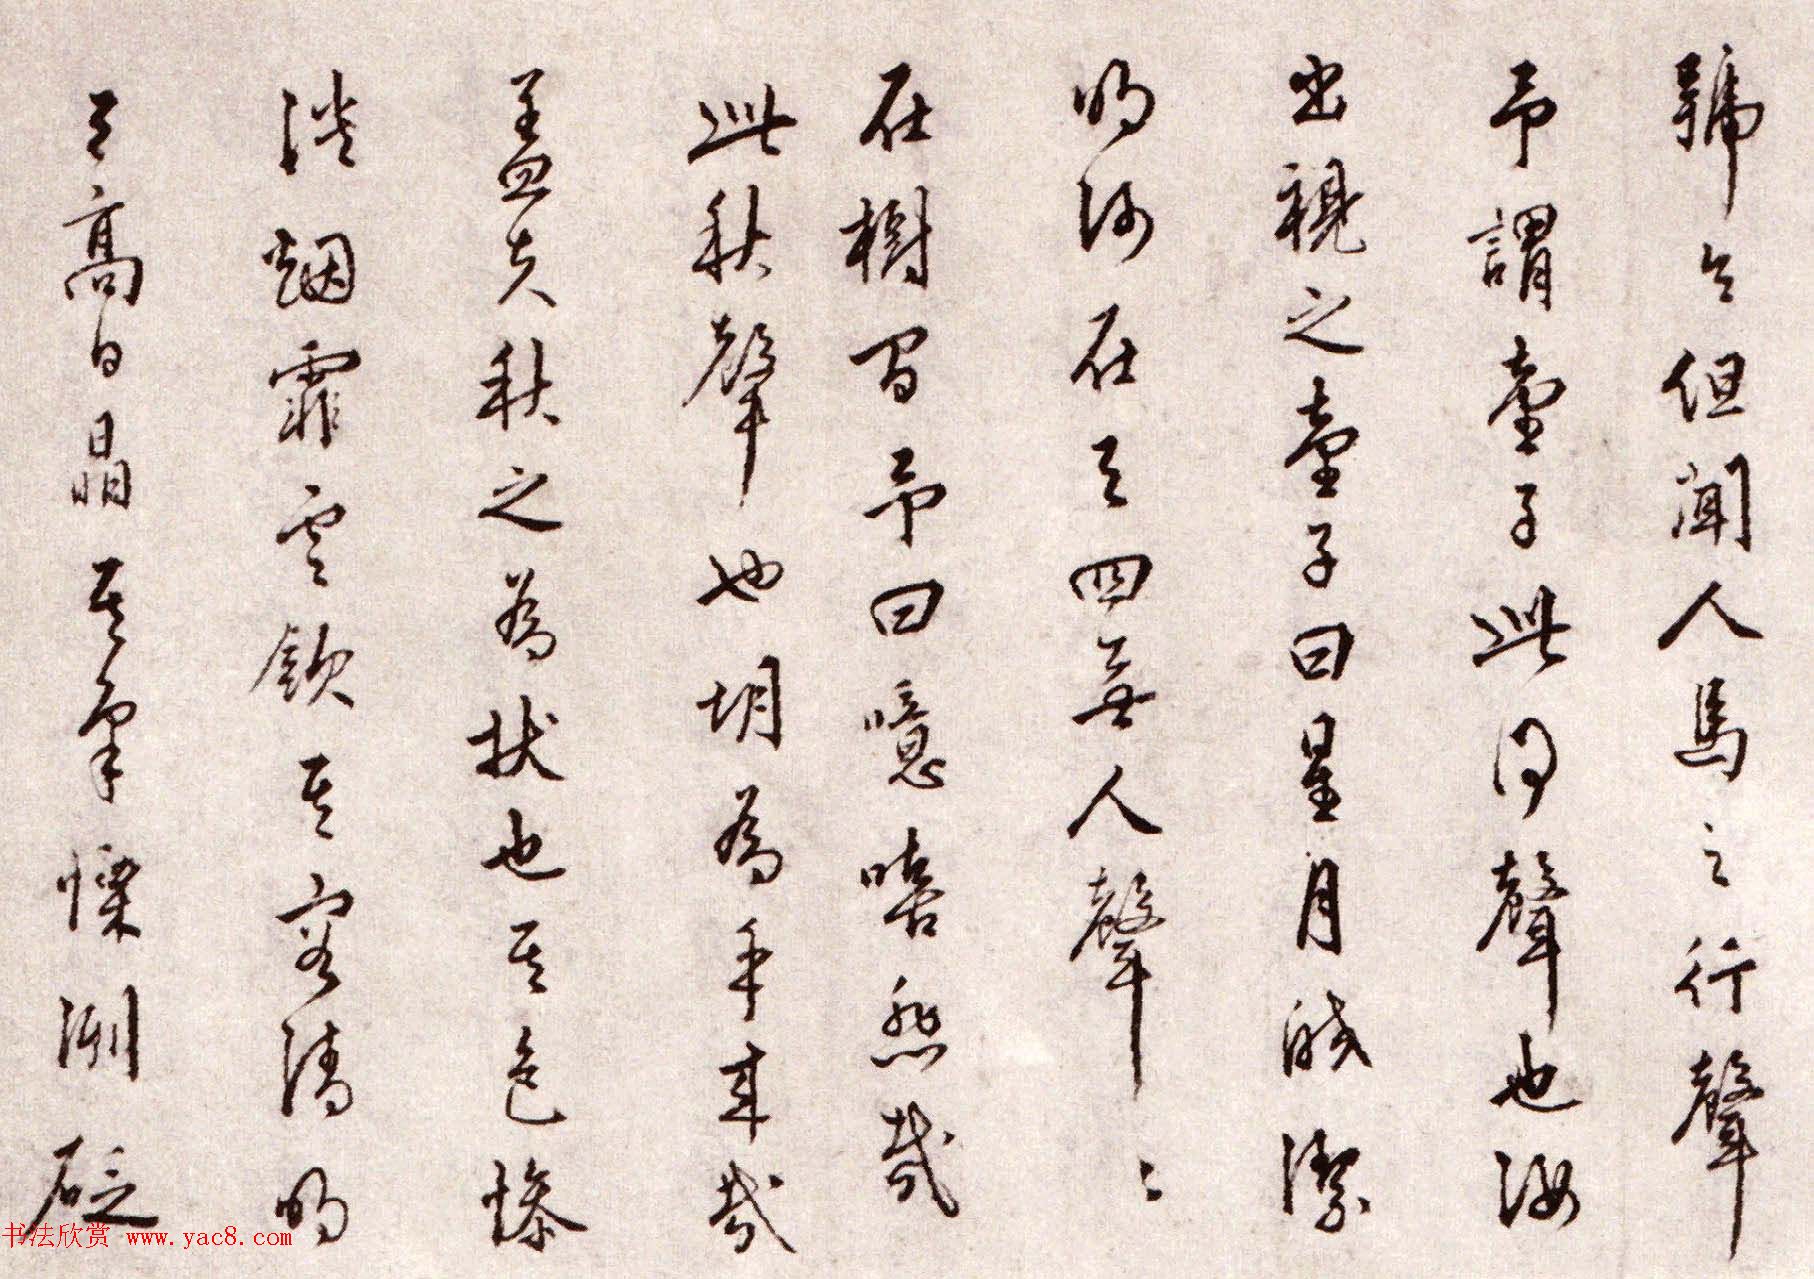 號令但聞人馬之行聲
予謂童子此何聲也汝
出視之童子曰星月皎潔
明河在天四無人聲聲
在樹間予曰噫嘻悲哉
此秋聲也胡為乎來哉
蓋夫秋之為狀也其色慘
淡烟霏雲斂其容清明
天高日晶其氣慄冽砭
书法欣赏 www.yac8.com